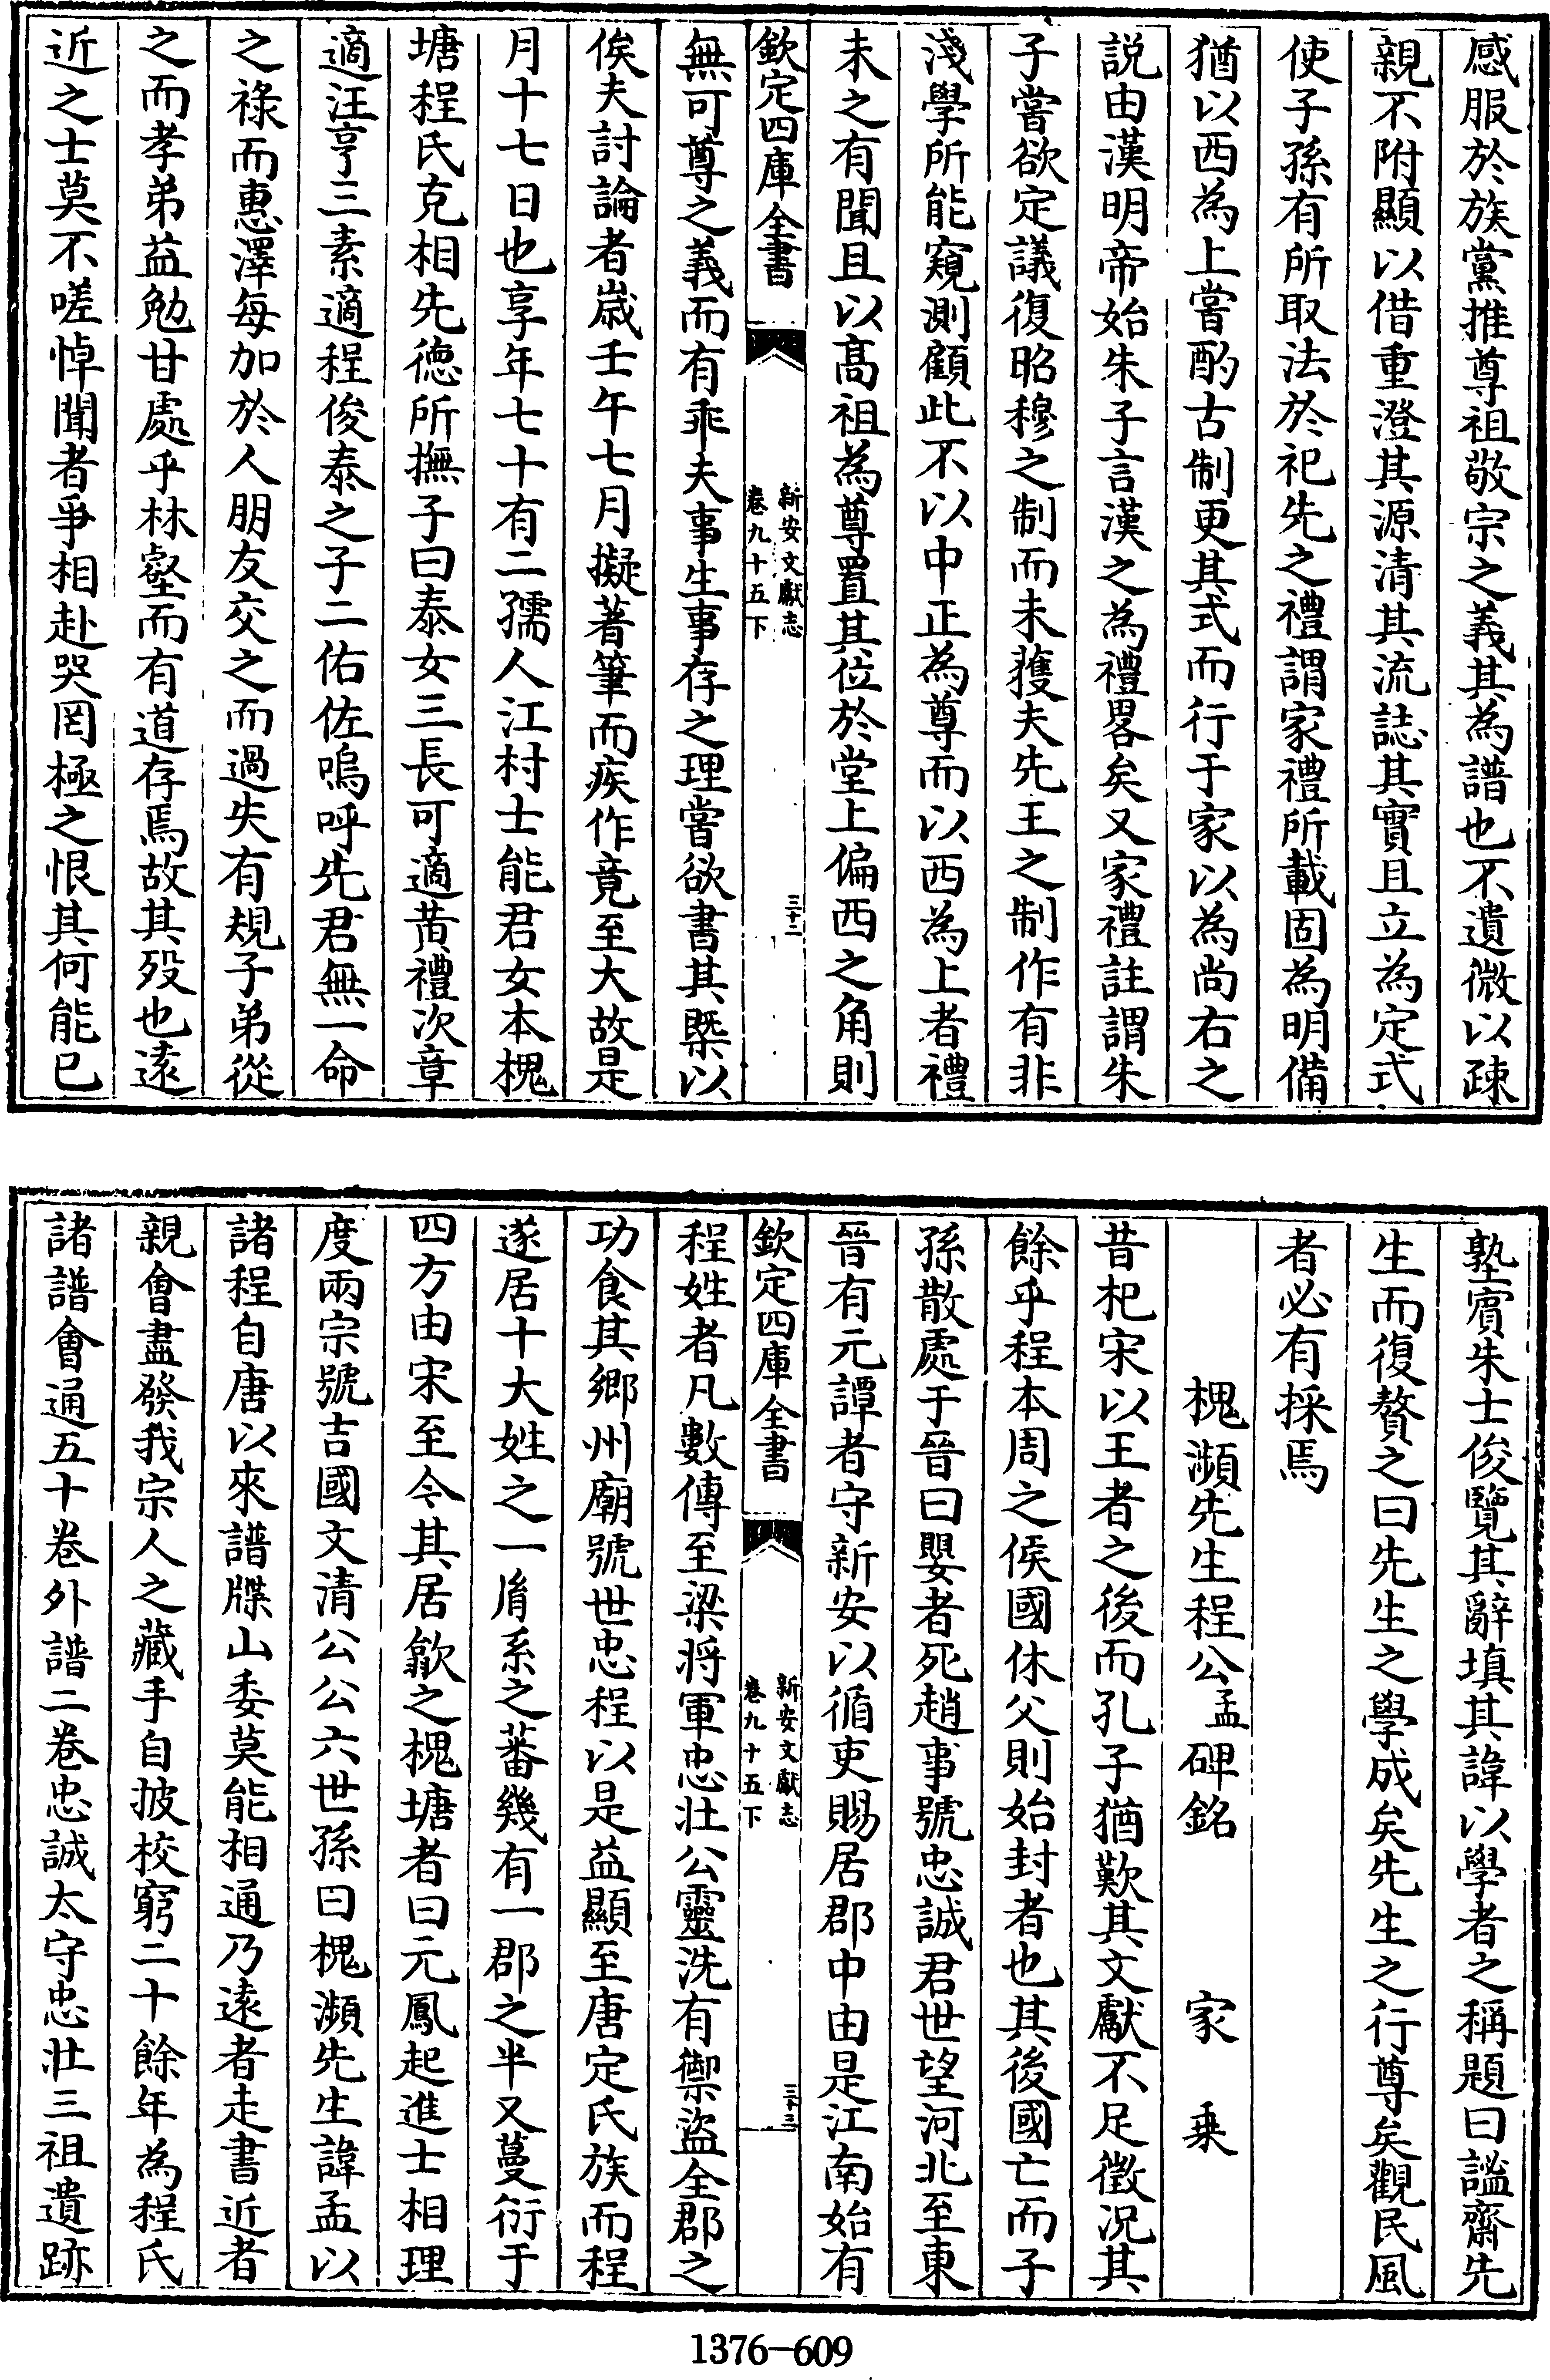 感服於族黨推尊祖敬宗之義其為譜也不遺微以疎
親不附顯以借重澄其源清其流誌其實且立為定式
使子孫有所取法於祀先之禮謂家禮所載固為明備
猶以西為上嘗酌古制更其式而行于家以為尚右之
説由漢明帝始朱子言漢之為禮畧矣又家禮註謂朱
子嘗欲定議復昭穆之制而未獲夫先王之制作有非
淺學所能窺測顧此不以中正為尊而以西為上者禮
未之有聞且以髙祖為尊置其位於堂上偏西之角則
欽定四庫全書
新安文獻志
卷九十五下
三十二
無可尊之義而有乖夫事生事存之理嘗欲書其槩以
俟夫討論者嵗壬午七月擬著筆而疾作竟至大故是
月十七日也享年七十有二孺人江村士能君女本槐
塘程氏克相先德所撫子曰泰女三長可適黄禮次章
適汪亨三素適程俊泰之子二佑佐嗚呼先君無一命
之祿而惠澤每加於人朋友交之而過失有規子弟從
之而孝弟益勉甘處乎林壑而有道存焉故其歿也逺
近之士莫不嗟悼聞者爭相赴哭罔極之恨其何能已
塾賓朱士俊覽其辭填其諱以學者之稱題曰謐齋先
生而復贅之曰先生之學成矣先生之行尊矣觀民風
者必有採焉
槐瀕先生程公孟碑銘 家乘
昔杞宋以王者之後而孔子猶歎其文獻不足徴況其
餘乎程本周之侯國休父則始封者也其後國亡而子
孫散處于晉曰嬰者死趙事號忠誠君世望河北至東
晉有元譚者守新安以循吏賜居郡中由是江南始有
欽定四庫全書
新安文獻志
卷九十五下
三十三
程姓者凡數傳至梁將軍忠壯公靈洗有禦盜全郡之
功食其鄉州廟號世忠程以是益顯至唐定氏族而程
遂居十大姓之一胤系之蕃幾有一郡之半又蔓衍于
四方由宋至今其居歙之槐塘者曰元鳳起進士相理
度兩宗號吉國文清公公六世孫曰槐瀕先生諱孟以
諸程自唐以來譜牒山委莫能相通乃逺者走書近者
親會盡發我宗人之藏手自披校窮二十餘年為程氏
諸譜會通五十卷外譜二卷忠誠太守忠壯三祖遺跡
1376-609